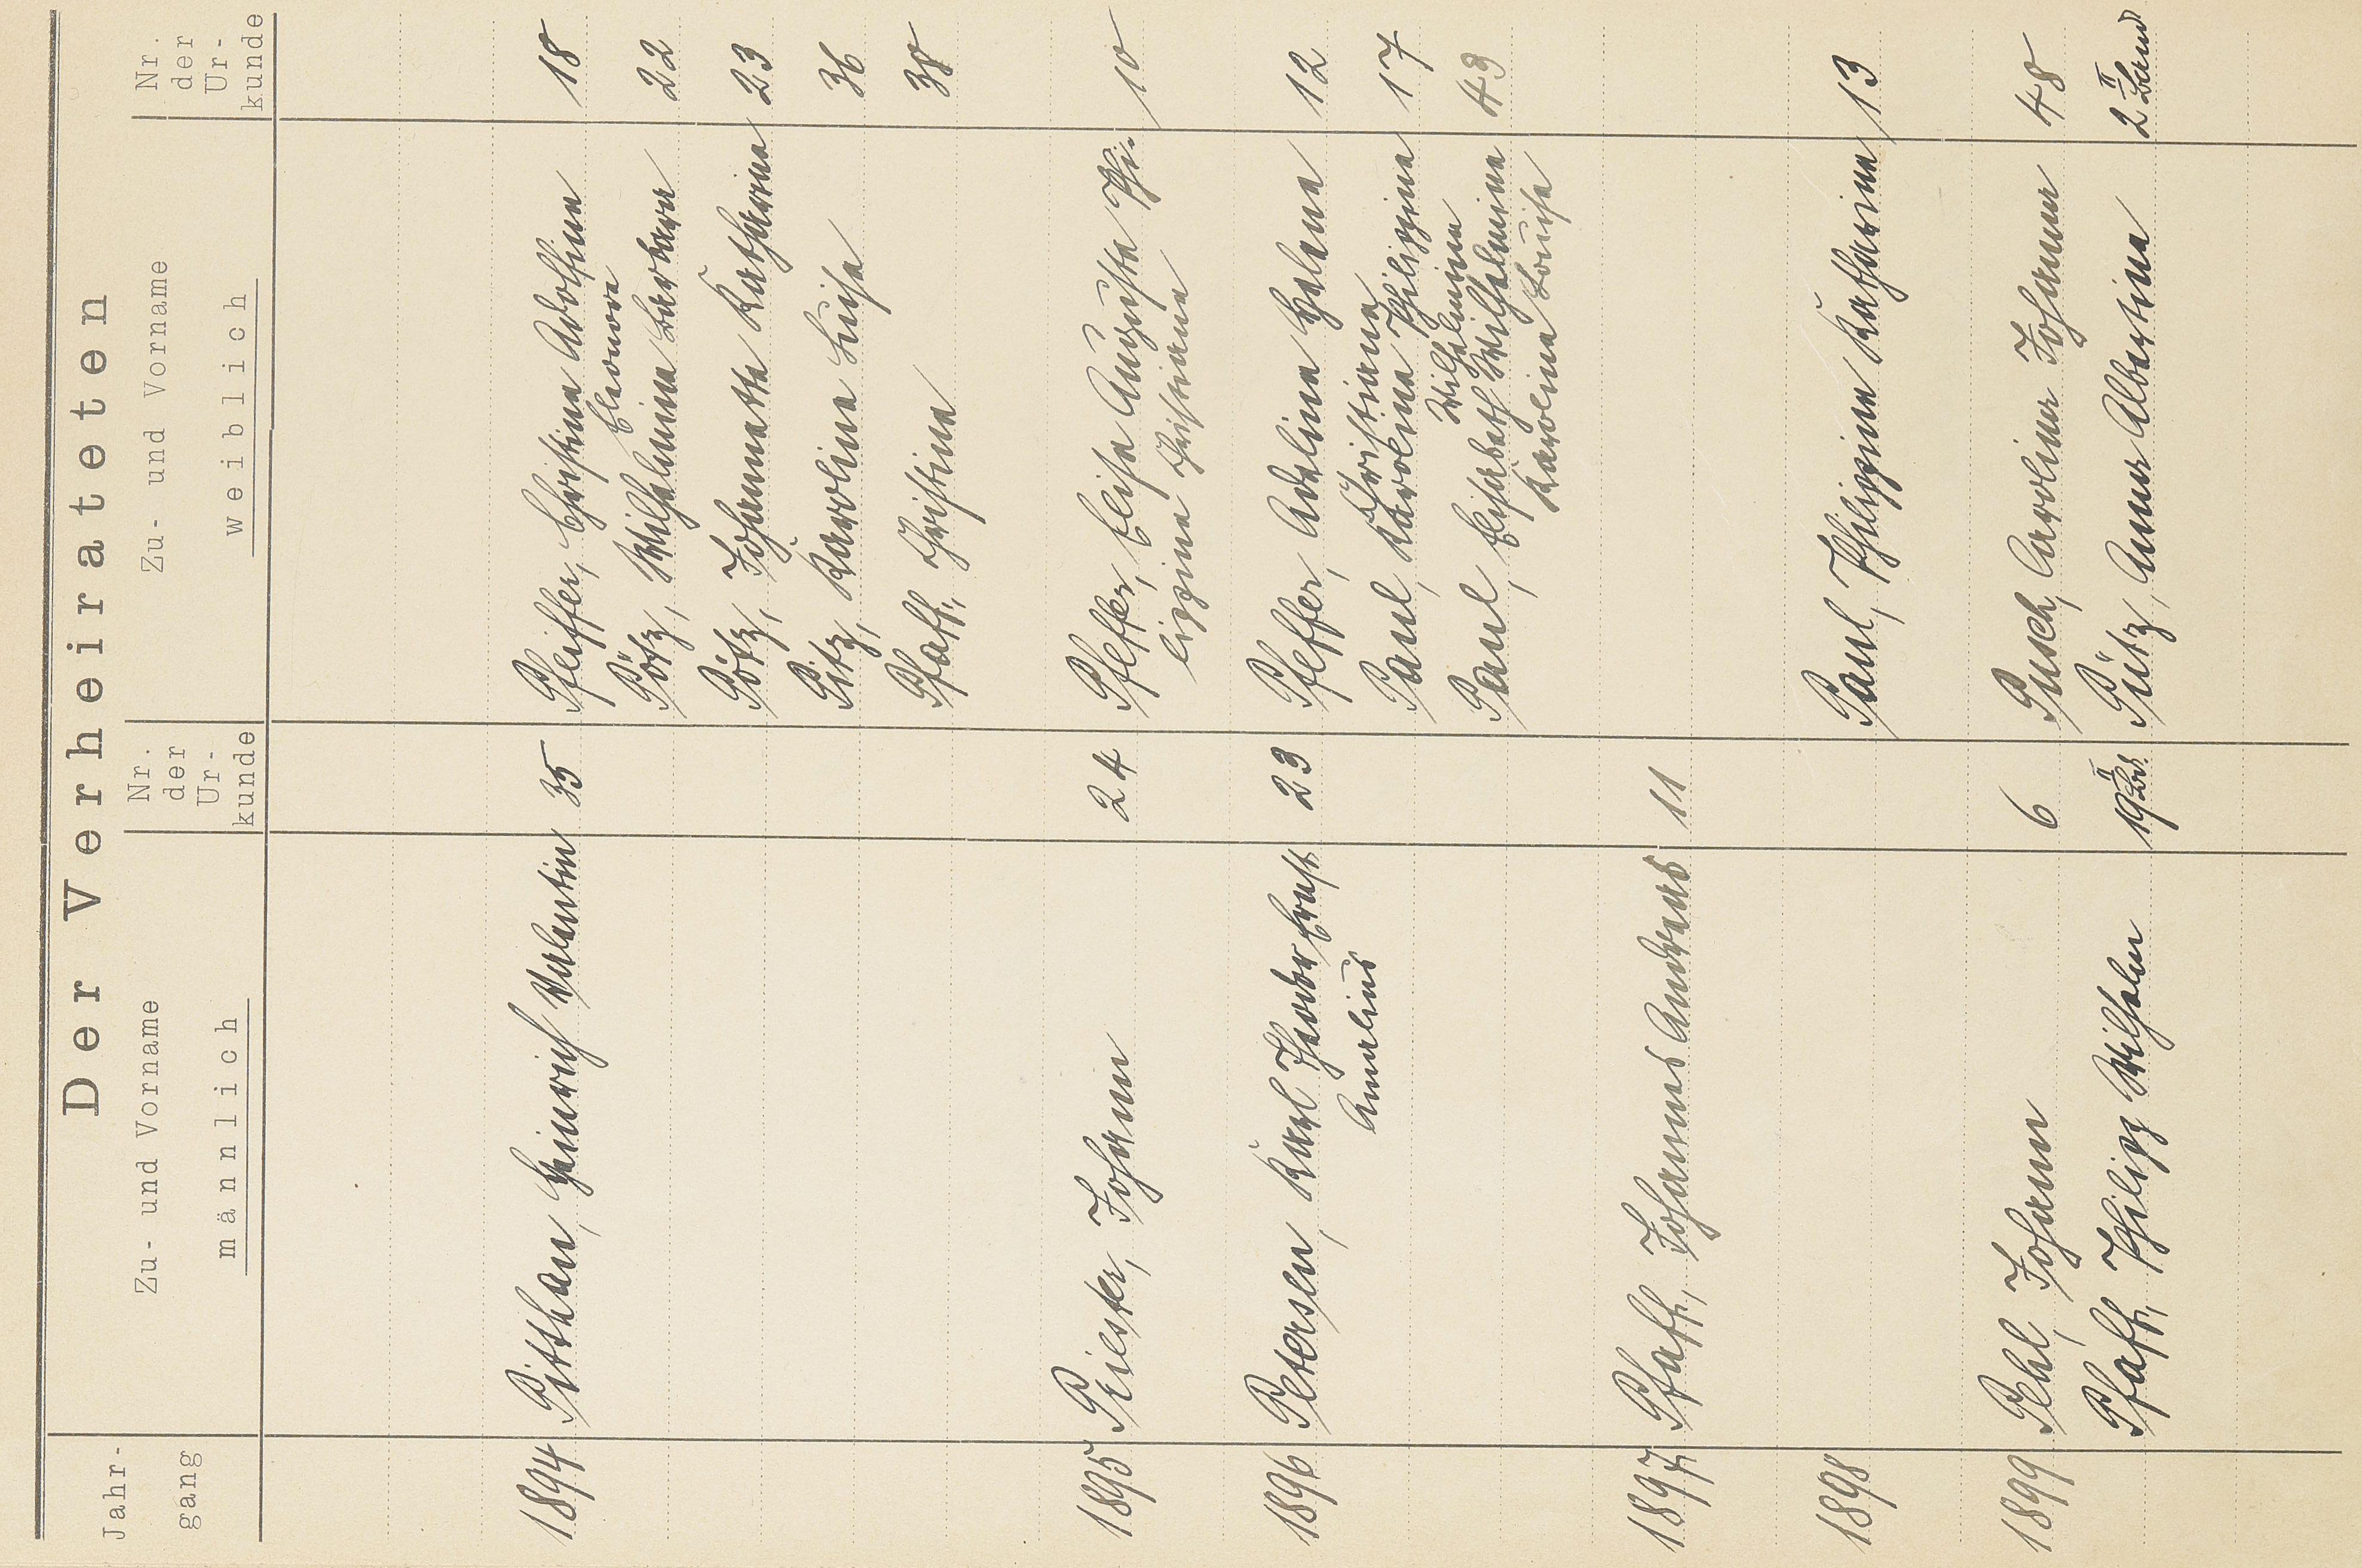 Der Verheirateten
Jahr-
gang
Zu- und Vorname
männlich
Nr.
der
Ur-
kunde
Zu- und Vorname
weiblich
Nr.
der
Ur-
kunde
1894 Pitthan, Heinrich Valentin 35 Pfeiffer, Christine Adolfine 18
Eleonore
Pötz, Wilhelmine Barbara 22
Pötz, Johannette Katharina 23
Pitz, Karoline Luise 36
Pfaff, Christine 38
1895 Peister, Johann 24 Pfeffer, Elise Auguste Phi- 10
lippine Christiane
1896 Petersen, Karl Theodor Ernst 23 Pfeffer, Adeline Helene 12
Amelius
Christiane
Paul, Karoline Philippine 17
Wilhelmine
Paul, Elisabeth Wilhelmine 43
Karoline Louise
1897 Pfaff, Johannes Andreas 11
1898 Paul, Philippine Katharina 13
1899 Pehl, Johann 6 Pusch, Caroline Johanna 48
Pfaff, Philipp Wilhelm 19 II Bd. Pütz, Anna Albertine 2 II Band